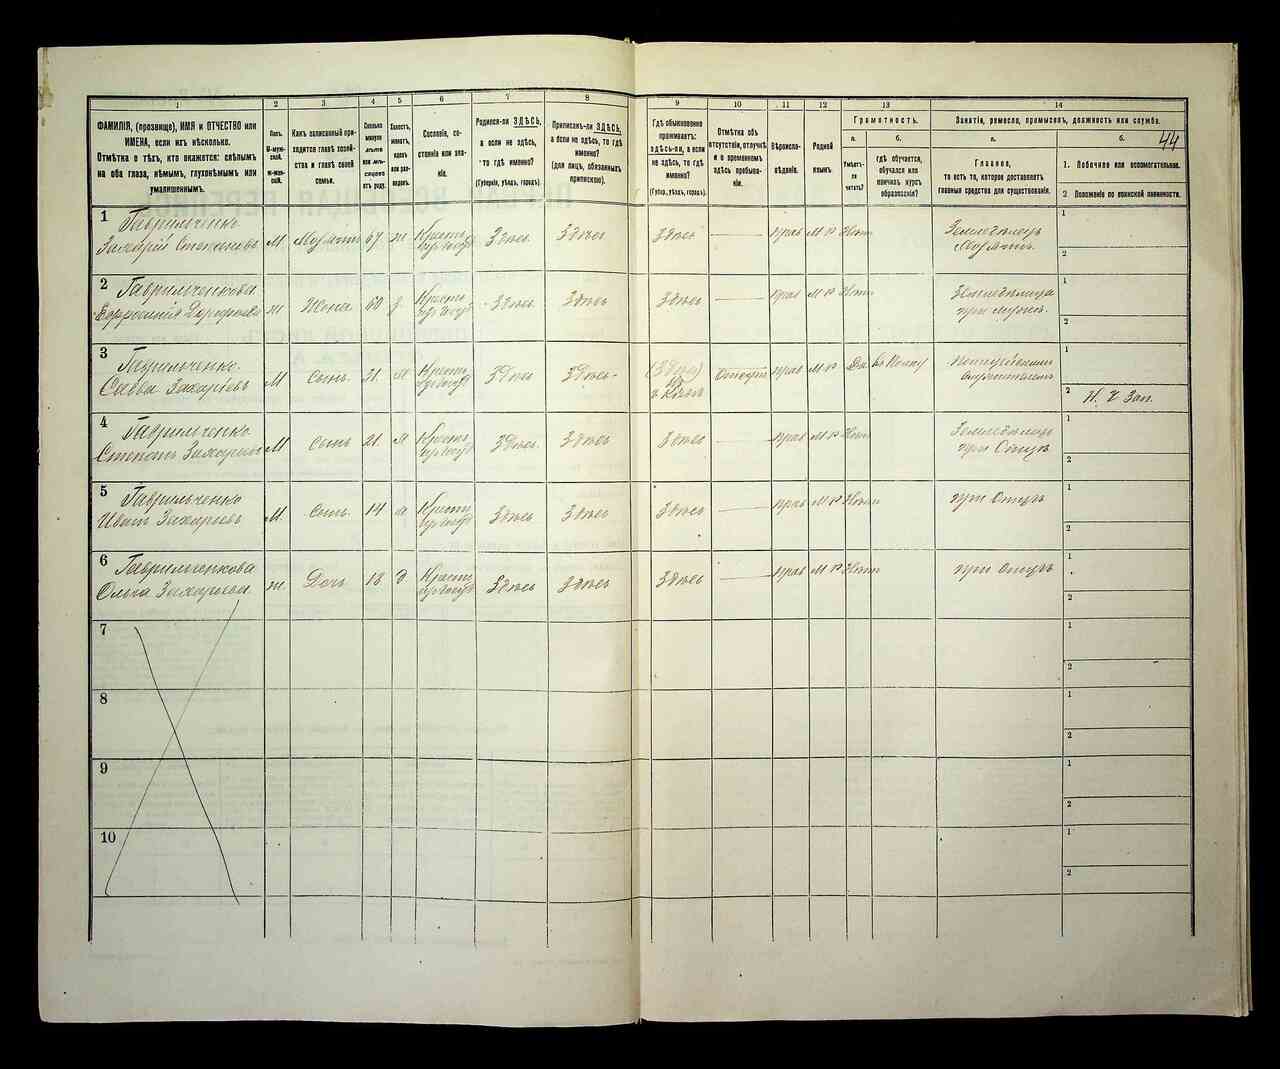 1
2
3
4
5
6
7
8
9
10
11
12
13
14
ФАМИЛІЯ, (прозвище), ИМЯ и ОТЧЕСТВО или
ИМЕНА, если ихъ нѣсколько.
Отмѣтка о тѣхъ, кто окажется: слѣпымъ
на оба глаза, нѣмымъ, глухонѣмымъ или
умалишеннымъ.
Полъ.
М-муж-
ской.
Ж-жен-
скій.
Какъ записанный при-
ходится главѣ хозяй-
ства и главѣ своей
семьи.
Сколько
минуло
лѣтъ
или мѣ-
сяцевъ
отъ роду.
Холостъ,
женатъ,
вдовъ
или раз-
веденъ.
Сословіе, со-
стояніе или зва-
ніе.
Родился-ли ЗДѢСЬ,
а если не здѣсь,
то гдѣ именно?
(Губернія, уѣздъ, городъ).
Приписанъ-ли ЗДѢСЬ,
а если не здѣсь, то гдѣ
именно?
(для лицъ, обязанныхъ
припискою).
Гдѣ обыкновенно
проживаетъ:
здѣсь-ли, а если
не здѣсь, то гдѣ
именно?
(Губер., уѣздъ, городъ).
Отмѣтка объ
отсутствіи, отлучкѣ
и о временномъ
здѣсь пребыва-
ніи.
Вѣроиспо-
вѣданіе.
Родной
языкъ.
Грамотность.
а.
б.
Умѣетъ-
ли
читать?
гдѣ обучается,
обучался или
кончилъ курсъ
образованія?
Занятіе, ремесло, промыселъ, должность или служба.
а.
б.
44
Главное,
то есть то, которое доставляетъ
главныя средства для существованія.
1. Побочное или вспомогательное.
2 Положеніе по воинской повинности.
1 Гаврильченко
Захарій Степановъ М. 67 ж Кресть Здѣсь Здѣсь Здѣсь прав М Р Нѣтъ Земледѣлецъ 1
2
2 Гаврильченкова
ж. Жена 60 Кресть Здѣсь Здѣсь Здѣсь прав М Р Нѣтъ Земледѣлица 1
при мужѣ. 2
3 Гаврильченко.
Савва Захарьевъ М Сынъ 21. Крестъ Здѣсь Здѣсь (Здѣсь) прав М Р Да 1
2 Н. Ч Зап.
4 Гаврильченко
Степанъ Захарьевъ М Сынъ 21. Крестъ Здѣсь Здѣсь Здѣсь прав М Р Нѣтъ Земледѣлецъ 1
при Отцѣ 2
5 Гаврильченко
Иванъ Захарьевъ М. Сынъ 14 Крестъ Здѣсь Здѣсь Здѣсь прав М Р Нѣтъ при Отцѣ 1
2
6 Гаврильченкова
Ольга Захарьева ж. Дочь 18 Крестъ Здѣсь Здѣсь Здѣсь прав М Р Нѣтъ при Отцѣ 1
2
7 1
2
8 1
2
9 1
2
10 1
2